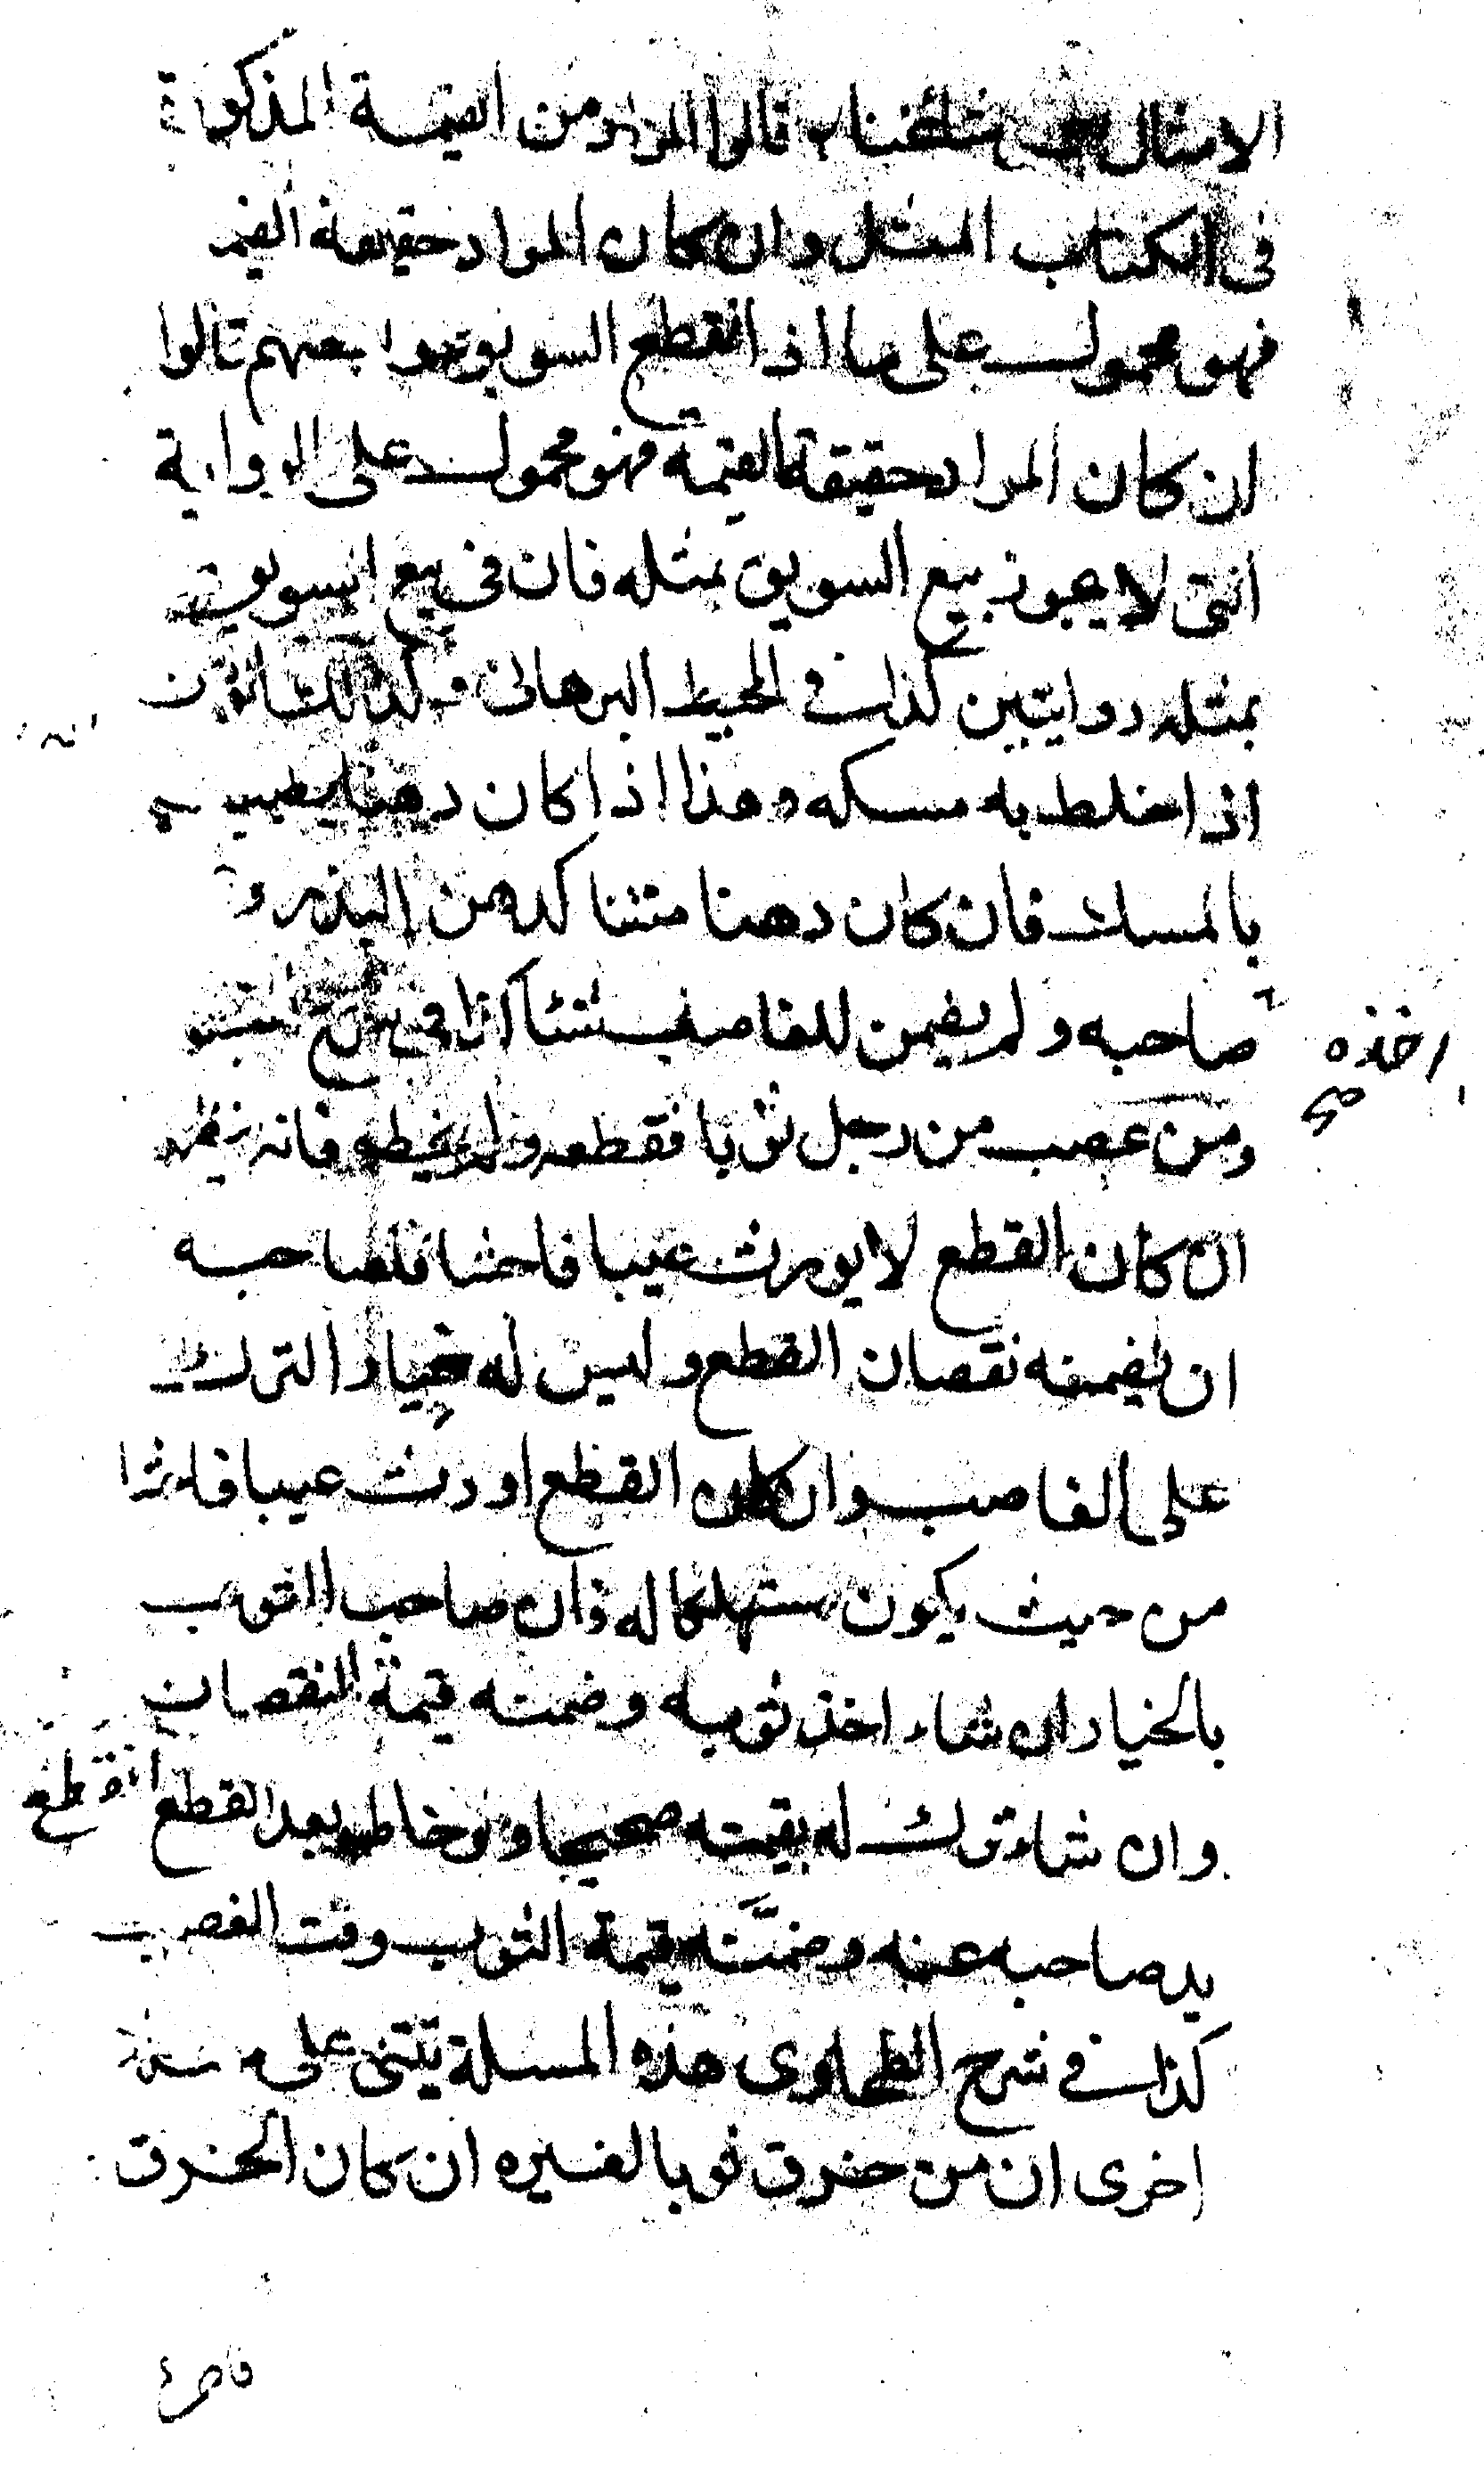 الامثال مشائخنا قالوا المراد من القيمة المذكورة
فى الكتاب المثل وان كان المراد حقيقة القيمة
فهو محمول على ما اذا انقطع السويق وبعضهم قالوا
ان كان المراد حقيقة القيمة فهو محمول على الرواية
التى لا يجوز بيع السويق بمثله فان فى بيع السويق
بمثله روايتين كذا فى المحيط البرهانى وكذلك
اذا خلط به مسكه وهذا اذا كان دهنا يطيب
بالمسك فان كان دهنا منتنا كدهن البذر و
اخذه صح
صاحبه ولم يضمن للغاصب شيئا كذا فى
ومن غصب من رجل ثوبا فقطعه ولم يخيطه فانه ينظر
ان كان القطع لا يورث عيبا فاحشا فلصاحبه
ان يضمنه نقصان القطع وليس له خيار الترك
على الغاصب وان كان القطع اورث عيبا فاحشا
من حيث يكون مستهلكا له فان صاحب الثوب
بالخيار ان شاء اخذ ثوبه وضمنه قيمة النقصان
وان شاء ترك له بقيمته صحيحا ولو خاطه بعد القطع انقطع
يد صاحبه عنه وضمنه قيمة الثوب وقت الغصب
كذا فى شرح الطحاوى هذه المسلة تبتنى على مسئلة
اخرى ان من خرق ثوبا لغيره ان كان الخرق